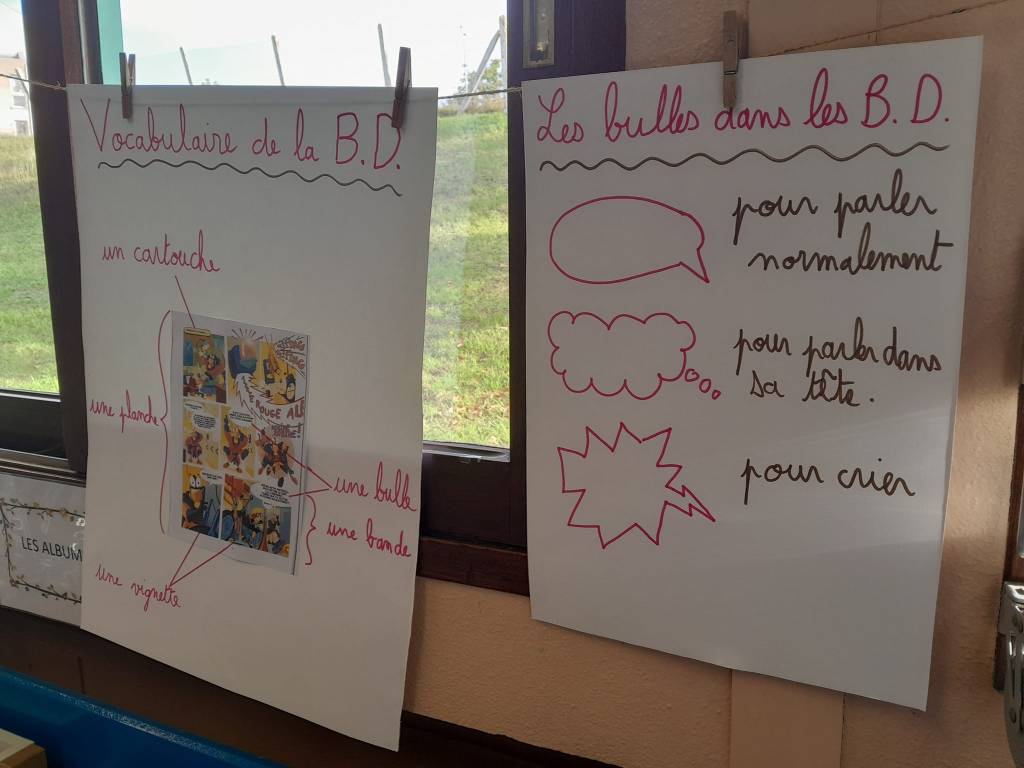 Vocabulaire de la B.D.
un cartouche
une planche
une bulle
une bande
une vignette
LES ALBUM
Les bulles dans les B.D.
pour parler
normalement
pour parler dans
sa tête.
pour crier